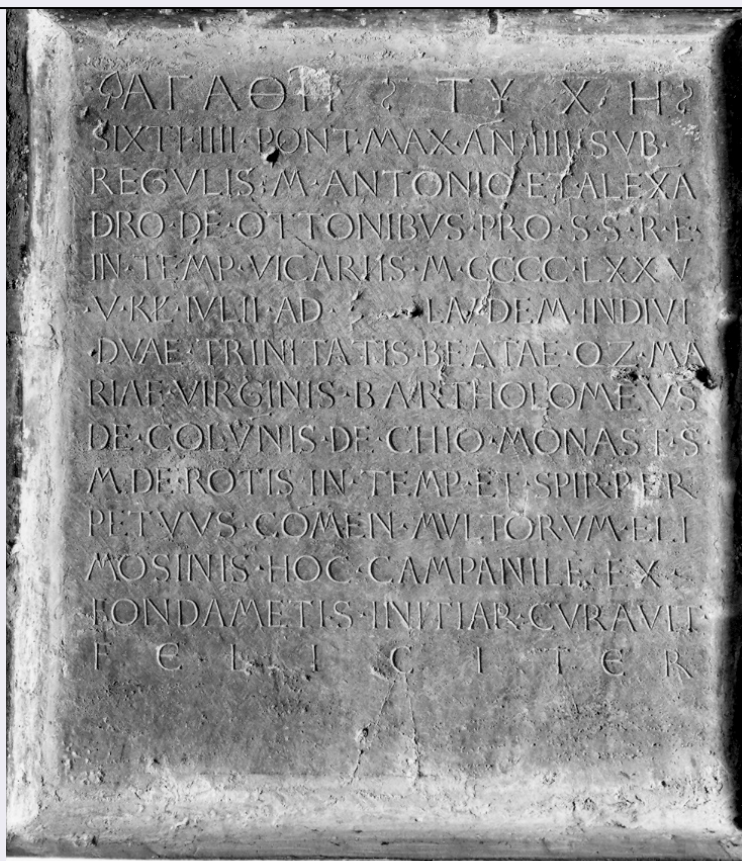 ΑΓΑΘΗ ΤΥΧΗ
SIXTI·IIII·PONT·MAX·AN·IIII·SVB·
REGVLIS·M·ANTONIO·ET·ALEXA
DRO·DE·OTTONIBVS·PRO·S·S·R·E·
IN·TEMP·VICARIIS·M·CCCC·LXXV
·V·KL·IVLII·AD· LAVDEM·INDIVI
·DVAE·TRINITATIS·BEATAE·QZ·MA
RIAE·VIRGINIS·BARTHOLOMEVS
DE·COLVNIS·DE·CHIO·MONAST·S·
M·DE·ROTIS·IN·TEMP·ET·SPIR·PER
PETVVS·COMEN·MVLTORVM·ELI
MOSINIS·HOC·CAMPANILE·EX·
FONDAMETIS·INITIAR·CVRAVIT
F E L I C I T E R